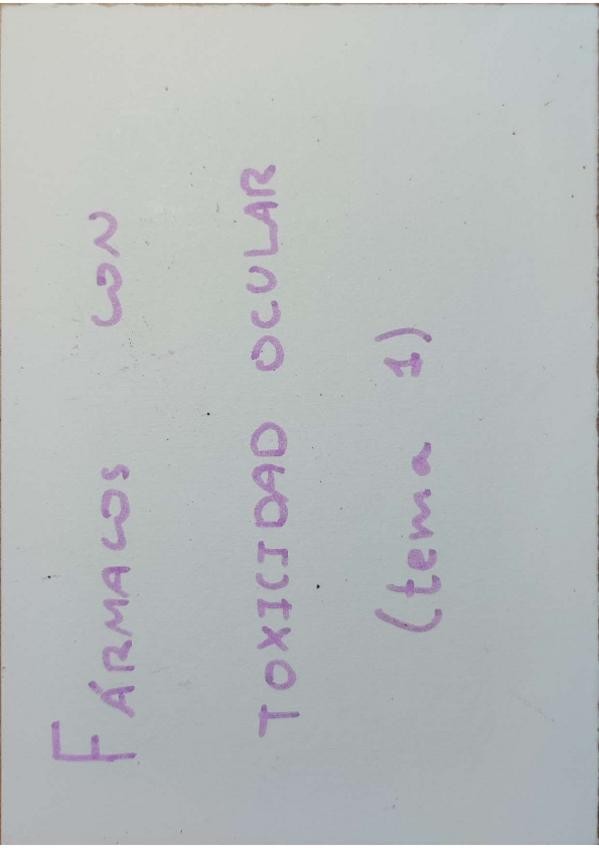 FÁRMACOS CON
TOXICIDAD OCULAR
(tema 1)